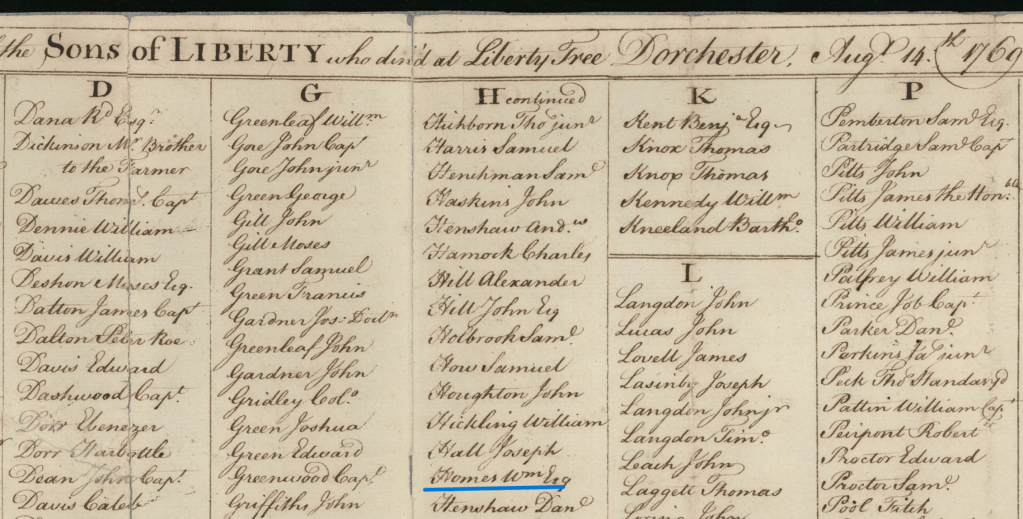 the Sons of LIBERTY who din'd at Liberty Tree Dorchester, Augt. 14.th 1769
D
Dana Rd Esqr.
Dickinson Mr. Brother
to the Farmer
Dawes Thomd. Capt
Dennie William
Davis William
Deshon Moses Esq.
Datton James Capt
Dalton Peter Roe
Davis Edward
Dashwood Capt.
Dorr Ebenezer
Dorr Harbottle
Dean John Capt.
Davis Caleb
G
Greenleaf Willm
Gore John Capt
Gore John junr
Green George
Gill John
Gill Moses
Grant Samuel
Green Francis
Gardner Jos: Doctn
Greenleaf John
Gardner John
Gridley Colo.
Green Joshua
Green Edward
Greenwood Capt.
Griffiths John
H continued
Hichborn Thos junr
Harris Samuel
Henchman Samd
Haskins John
Henshaw And.w
Hamock Charles
Hill Alexander
Hill John Esq
Holbrook Samd.
How Samuel
Houghton John
Hickling William
Hall Joseph
Homes Wm Esq
Henshaw Dand
K
Kent Benja Esq
Knox Thomas
Knox Thomas
Kennedy Willm
Kneeland Bartho.
L
Langdon John
Lucas John
Lovell James
Lasinby Joseph
Langdon John jr
Langdon Timo.
Leach John
Laggett Thomas
Loring John
P
Pemberton Samd Esq.
Partridge Samd Capt
Pitts John
Pitts James the Hon:ble
Pitts William
Pitts James junr
Palfrey William
Prince Job Capt
Parker Dand.
Perkins Jas junr
Peck Thos Handasyd
Pattin William Capt
Peirpont Robert
Proctor Edward
Proctor Samd.
Pool Fitch